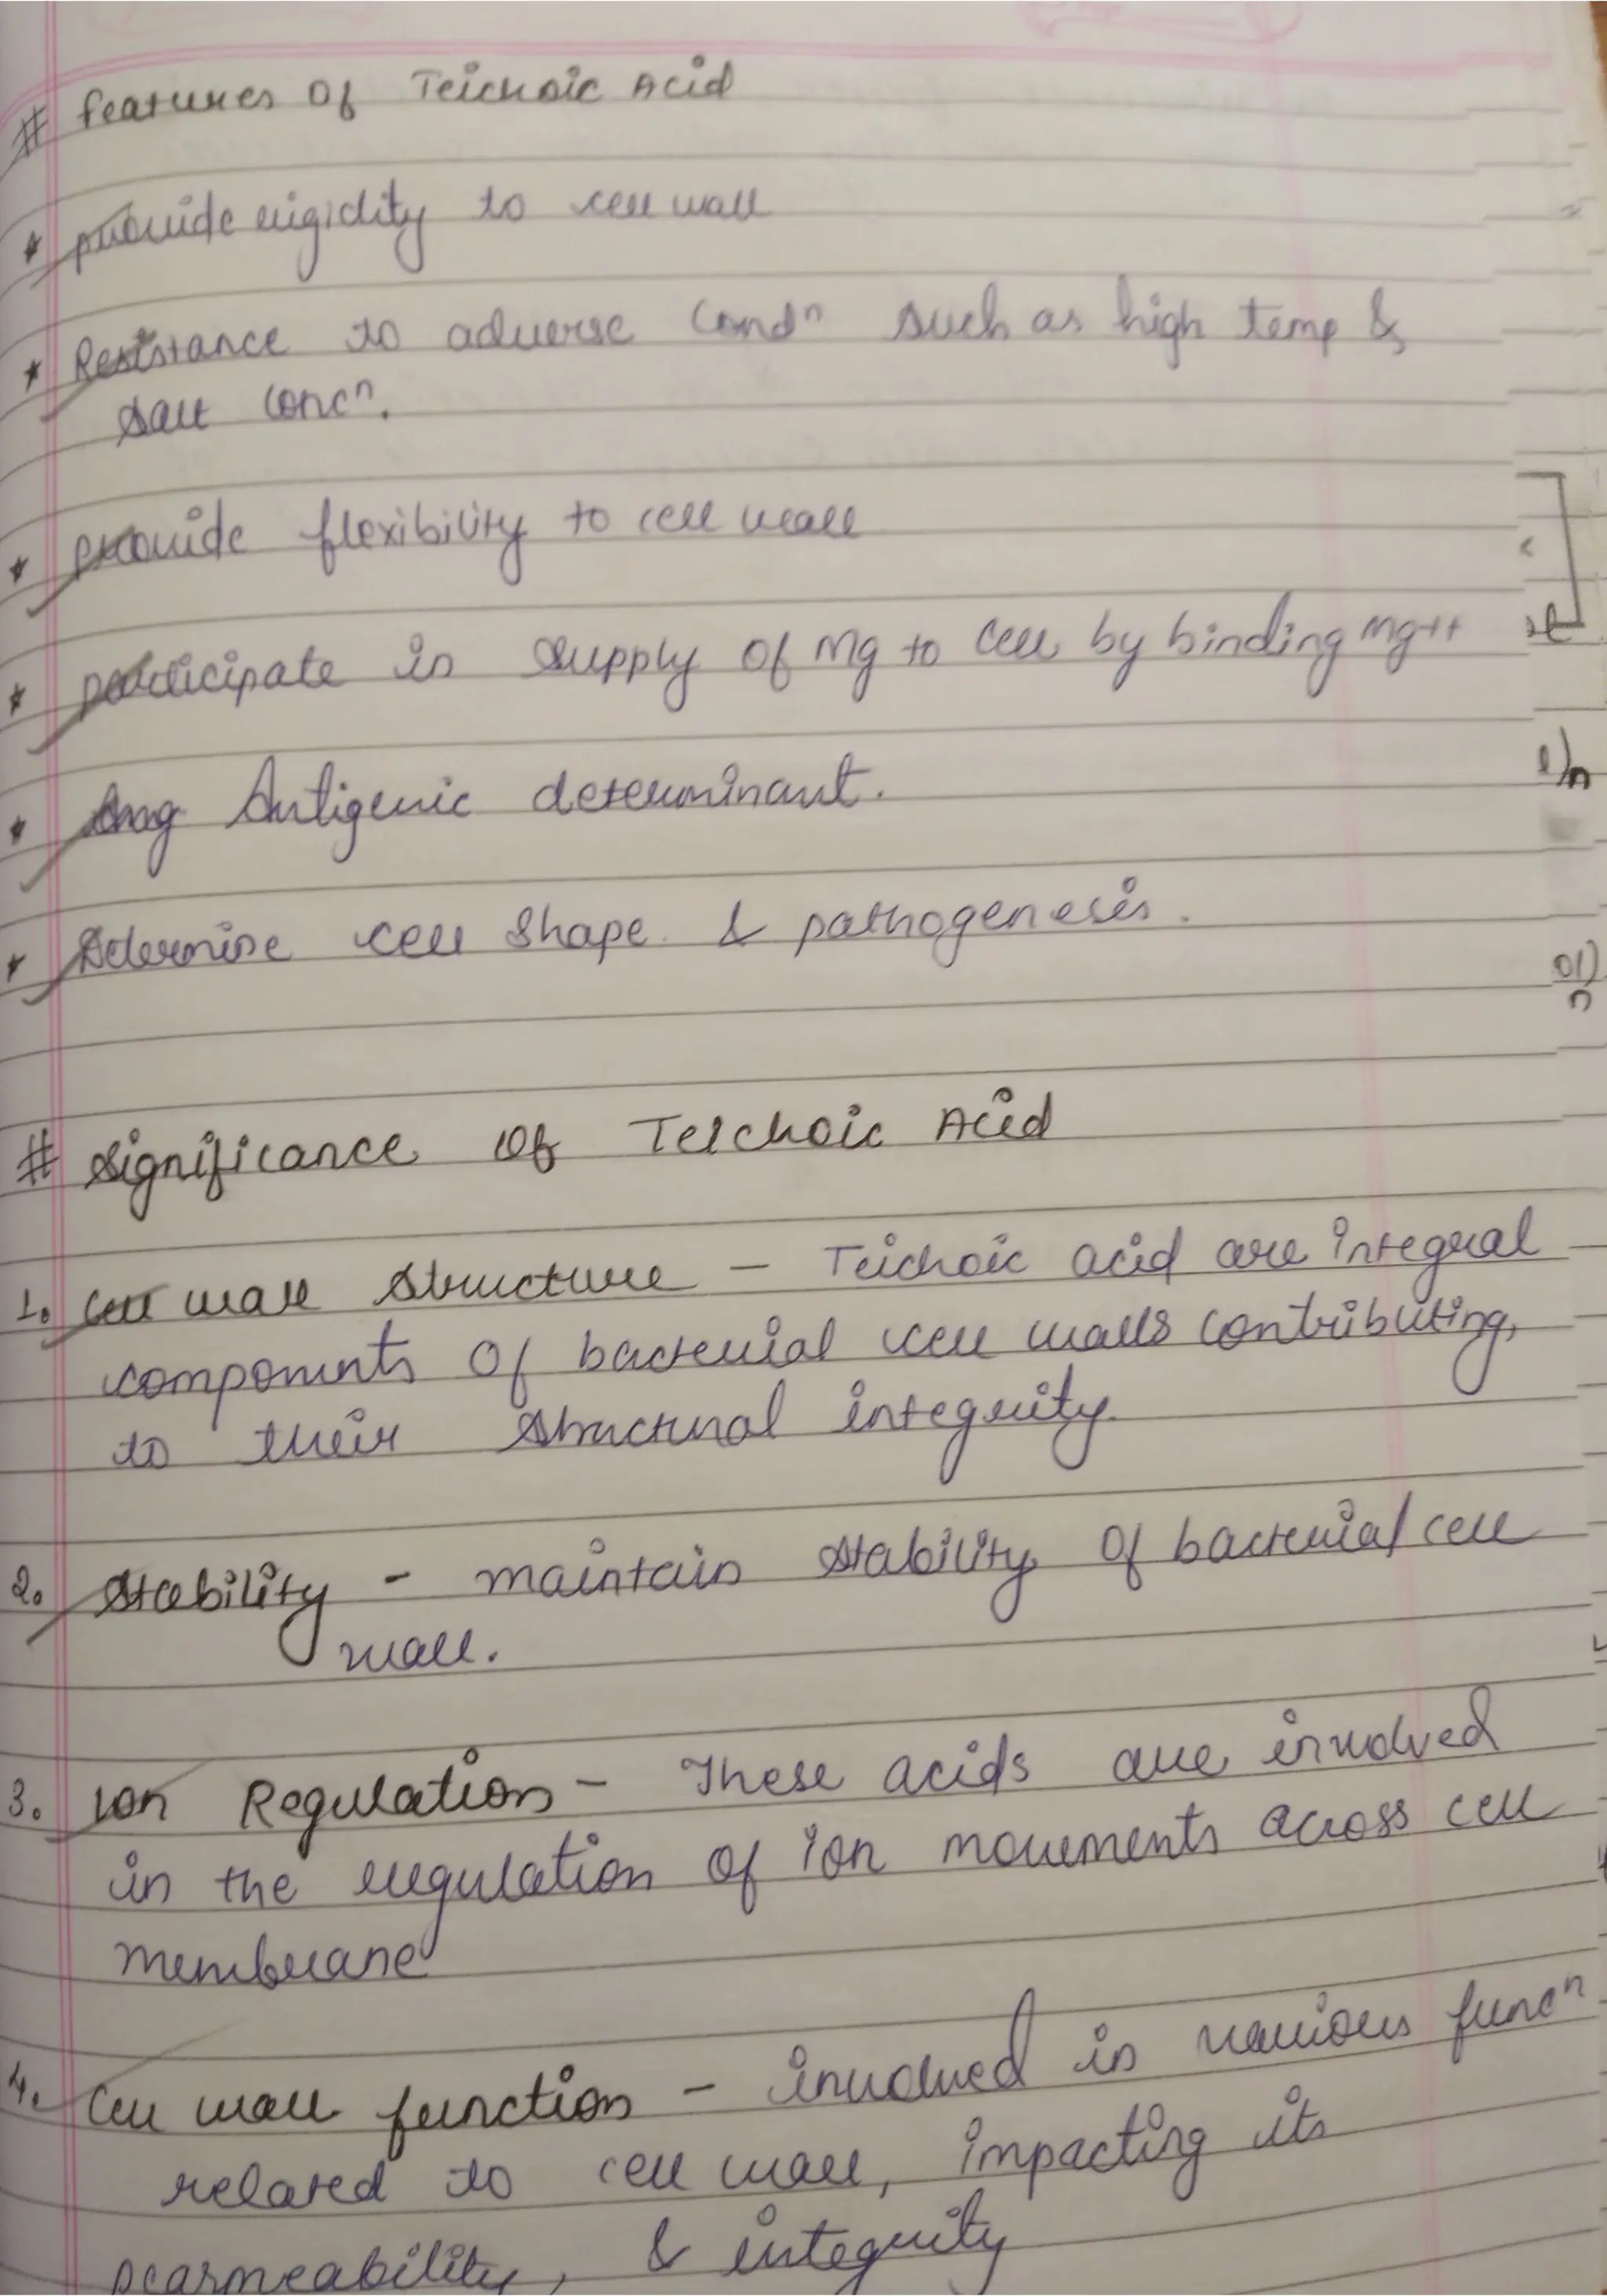 # features Of Teichoic Acid
* provide rigidity to cell wall
* Resistance to adverse condn such as high temp &
salt concn.
* provide flexibility to cell wall
* participate in supply of Mg to cell by binding Mg++
* Antigenic determinant.
* Determine cell shape & pathogenesis.
# Significance Of Teichoic Acid
1. Cell wall Structure - Teichoic acid are integral
components of bacterial cell walls contributing,
to their structural integrity.
2. Stability - maintain stability of bacterial cell
wall.
3. Ion Regulation - These acids are involved
in the regulation of ion movements across cell
membrane
4. Cell wall function - involved in various funcn
related to cell wall, impacting its
pearmeability, & integrity